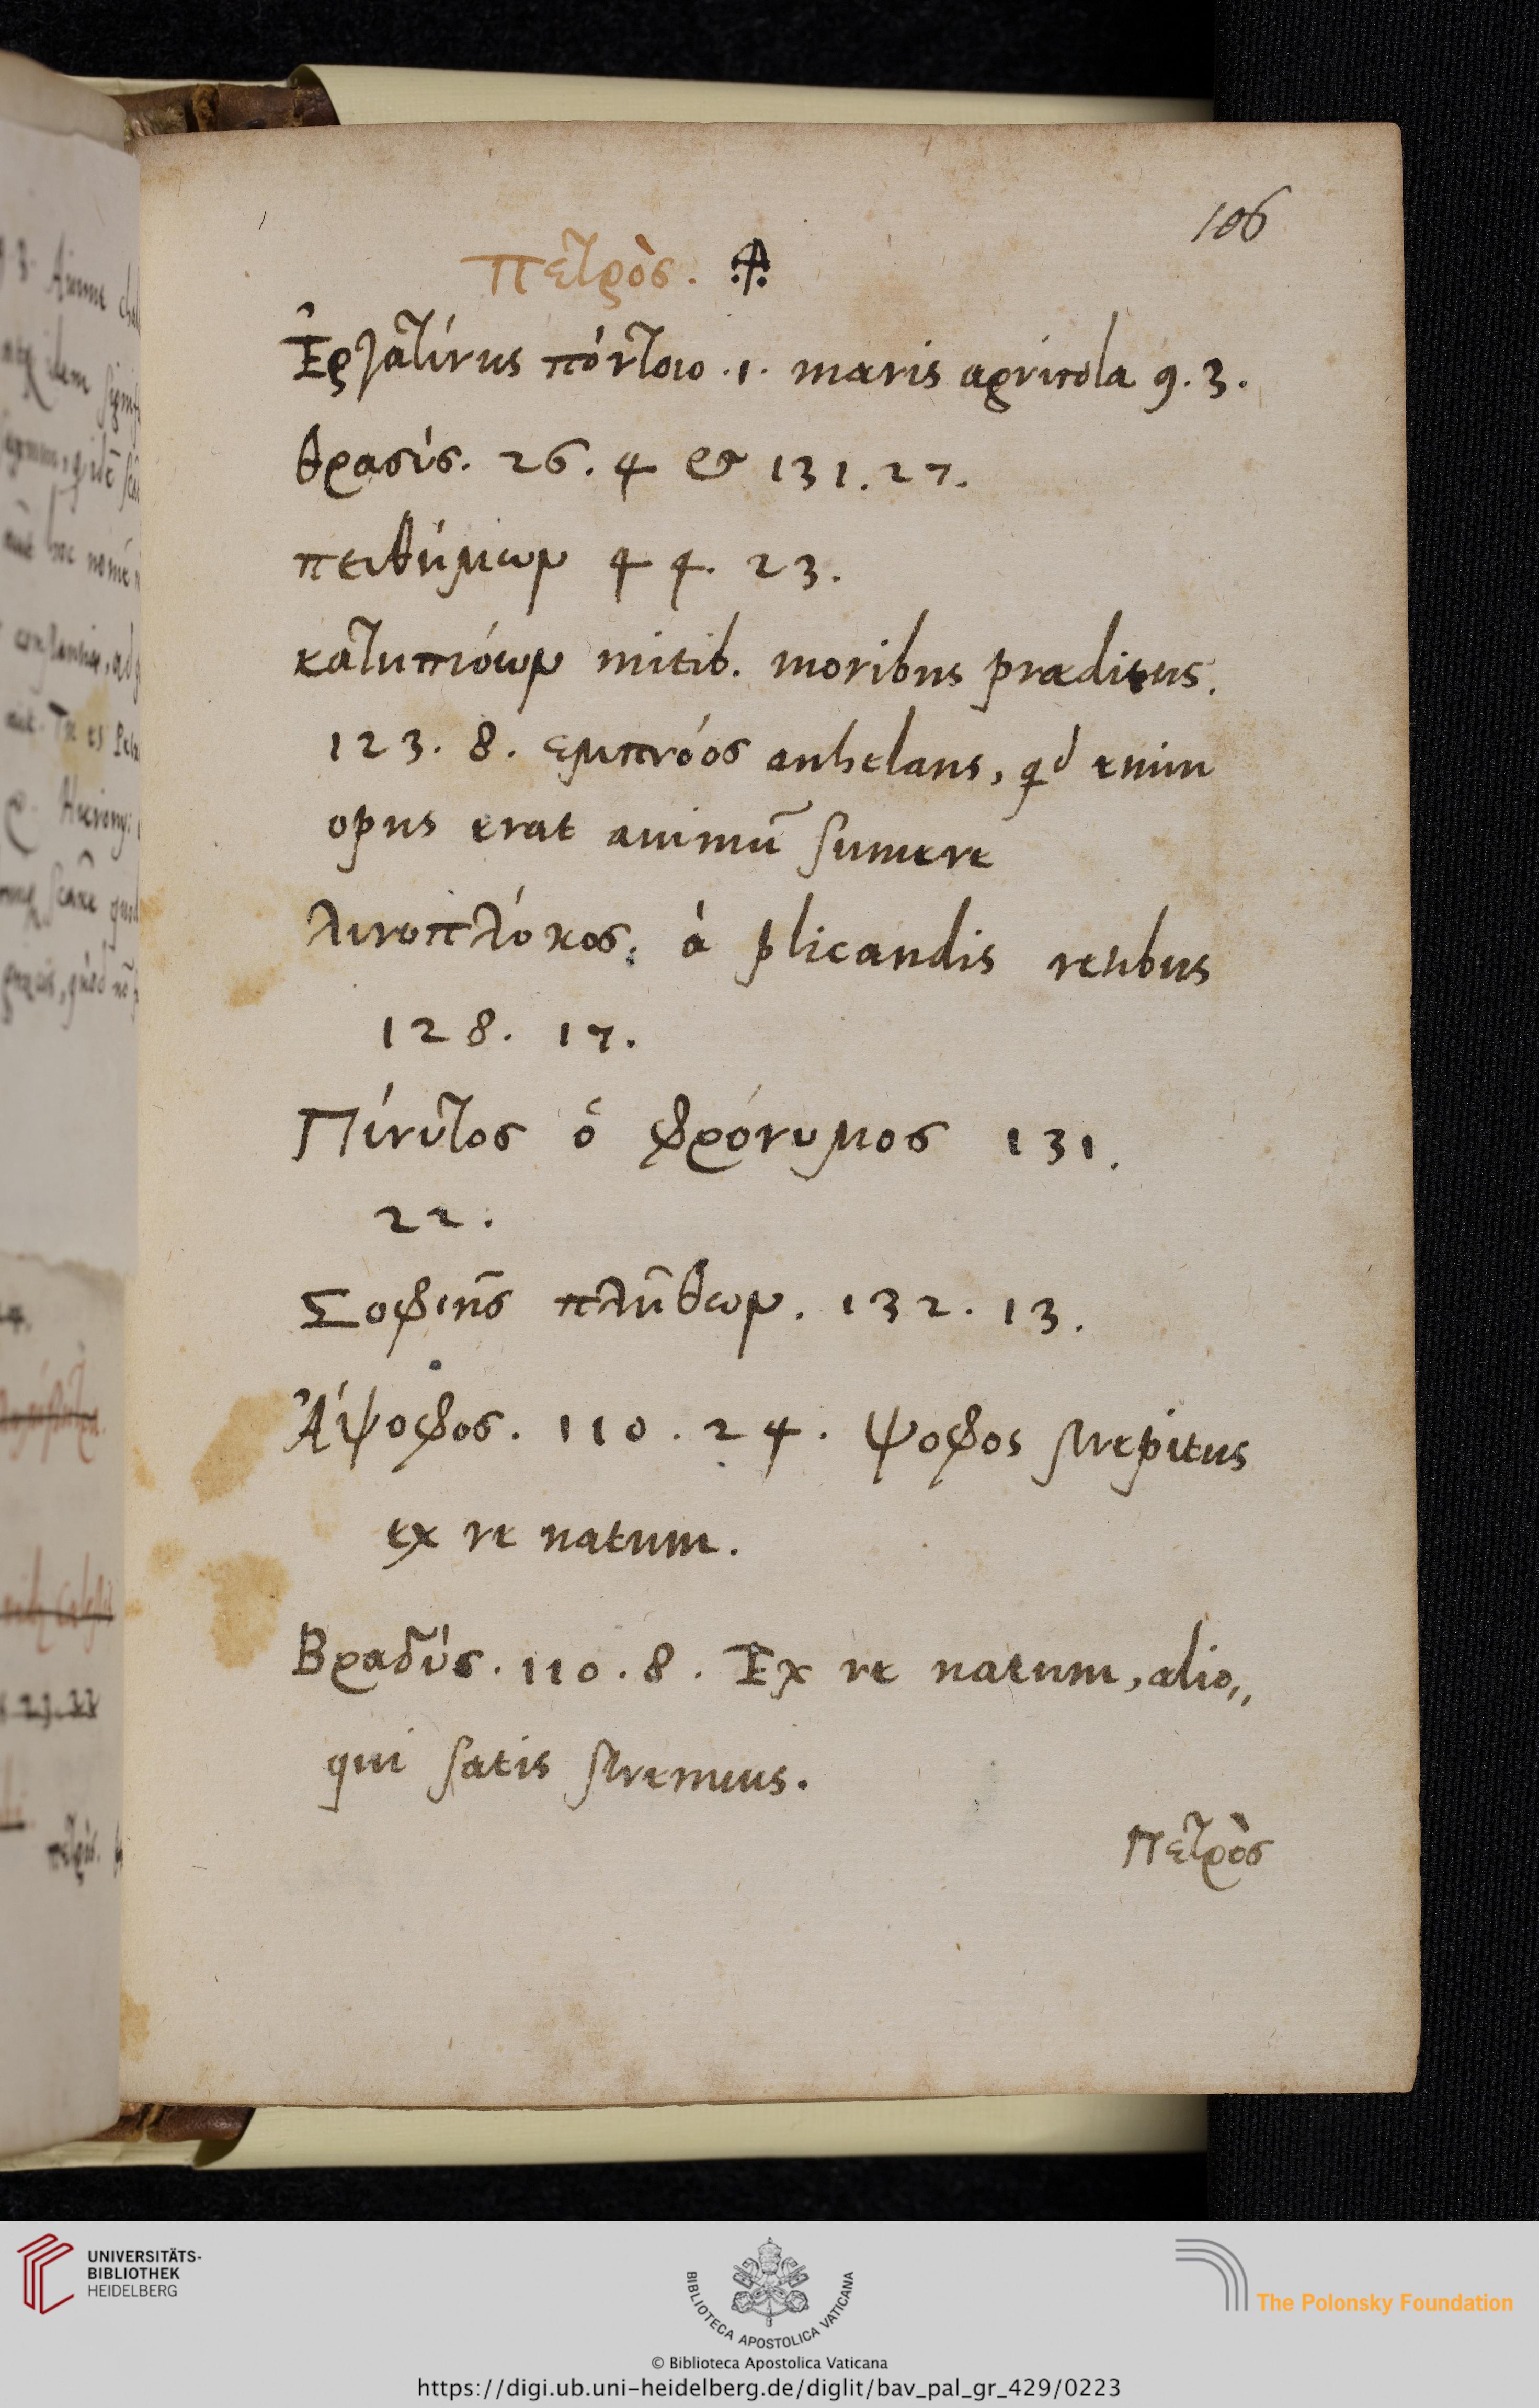 106
πετρὸς.
Ἐργατίνης πόντοιο .1. maris agricola 9. 3.
θρασύς. 26. 4 & 131. 27.
πειθήμων 44. 23.
κατηπιόων mitib. moribus praeditus.
123. 8. εμπνόος anhelans, qd enim
opus erat animū sumere
λινοπλόκος: à plicandis retibus
128. 17.
Πίνυτος ὁ φρόνυμος 131.
22.
Σοφιης πλήθων. 132. 13.
Ἀίψοφος. 110. 24. ψοφος strepitus
ex re natum.
Βραδύς. 110. 8. Ex re natum, alio„
qui satis strenuus.
Πετρὸς
UNIVERSITÄTS-
BIBLIOTHEK
HEIDELBERG
BIBLIOTECA APOSTOLICA VATICANA
The Polonsky Foundation
© Biblioteca Apostolica Vaticana
https://digi.ub.uni-heidelberg.de/diglit/bav_pal_gr_429/0223